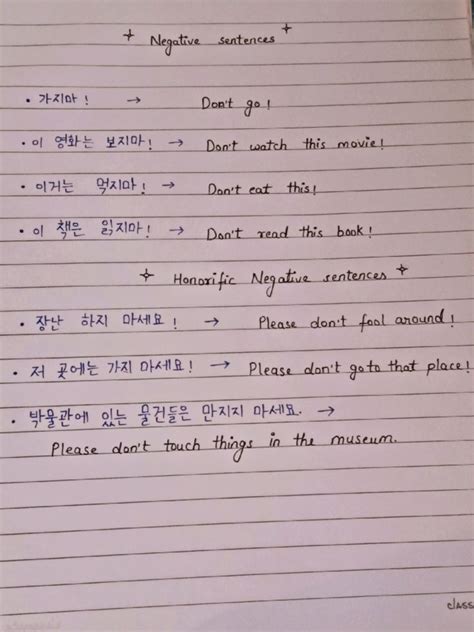 Negative sentences
• 가지마! → Don't go!
• 이 영화는 보지마! → Don't watch this movie!
• 이거는 먹지마! → Don't eat this!
• 이 책은 읽지마! → Don't read this book!
Honorific Negative sentences
• 장난 하지 마세요! → Please don't fool around!
• 저 곳에는 가지 마세요! → Please don't go to that place!
• 박물관에 있는 물건들은 만지지 마세요. →
Please don't touch things in the museum.